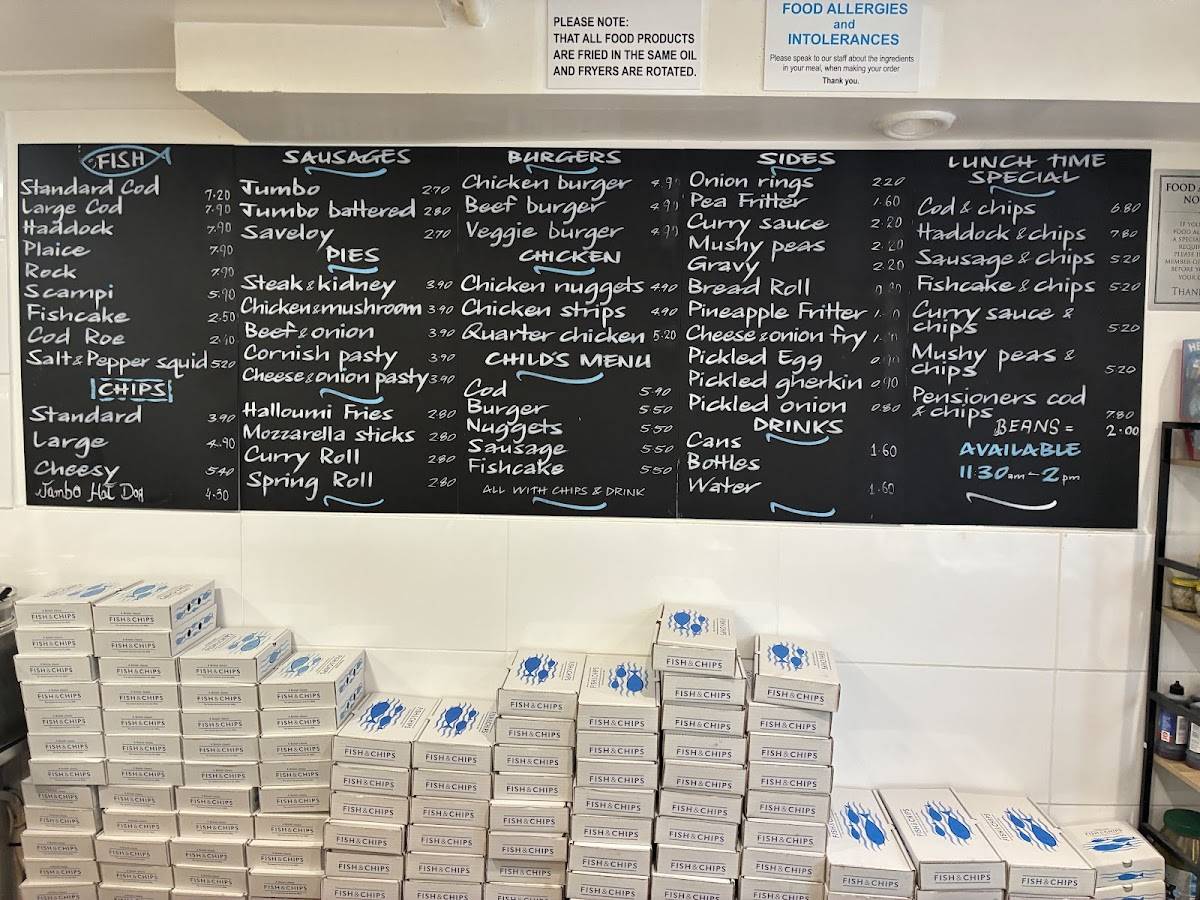 PLEASE NOTE:
THAT ALL FOOD PRODUCTS
ARE FRIED IN THE SAME OIL
AND FRYERS ARE ROTATED.
FOOD ALLERGIES
and
INTOLERANCES
Please speak to our staff about the ingredients
in your meal, when making your order
Thank you.
FISH
Standard Cod 7.20
Large Cod 7.90
Haddock 7.90
Plaice 7.90
Rock 7.90
Scampi 5.90
Fishcake 2.50
Cod Roe
Salt & Pepper squid 5.20
CHIPS
Standard 3.90
Large 4.90
Cheesy 5.40
Jumbo Hot Dog 4.30
SAUSAGES
Jumbo 2.70
Jumbo battered 2.80
Saveloy 2.70
PIES
Steak & kidney 3.90
Chicken & mushroom 3.90
Beef & onion 3.90
Cornish pasty 3.90
Cheese & onion pasty 3.90
Halloumi Fries 2.80
Mozzarella sticks 2.80
Curry Roll 2.80
Spring Roll 2.80
BURGERS
Chicken burger 4.90
Beef burger 4.90
Veggie burger 4.90
CHICKEN
Chicken nuggets 4.90
Chicken strips 4.90
Quarter chicken 5.20
CHILD'S MENU
Cod 5.90
Burger 5.50
Nuggets 5.50
Sausage 5.50
Fishcake 5.50
ALL WITH CHIPS & DRINK
SIDES
Onion rings 2.20
Pea Fritter 1.60
Curry sauce 2.20
Mushy peas 2.20
Gravy 2.20
Bread Roll
Pineapple Fritter
Cheese & onion fry
Pickled Egg
Pickled gherkin 0.90
Pickled onion 0.80
DRINKS
Cans 1.60
Bottles
Water 1.60
LUNCH TIME
SPECIAL
Cod & chips 6.80
Haddock & chips 7.80
Sausage & chips 5.20
Fishcake & chips 5.20
Curry sauce &
chips 5.20
Mushy peas &
chips 5.20
Pensioners cod
& chips 7.80
BEANS = 2.00
AVAILABLE
11:30am - 2pm
FISH & CHIPS